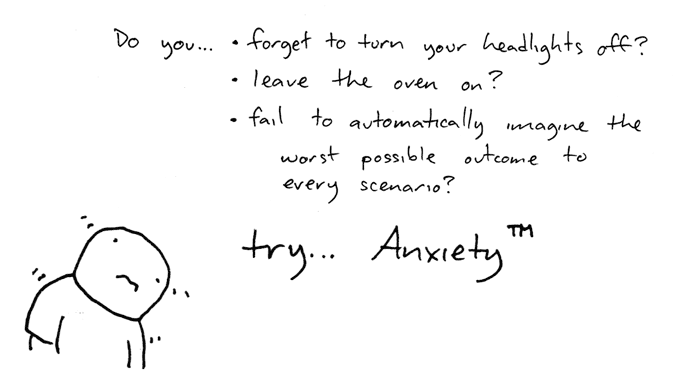 Do you... • forget to turn your headlights off?
• leave the oven on?
• fail to automatically imagine the
worst possible outcome to
every scenario?
try... Anxiety™